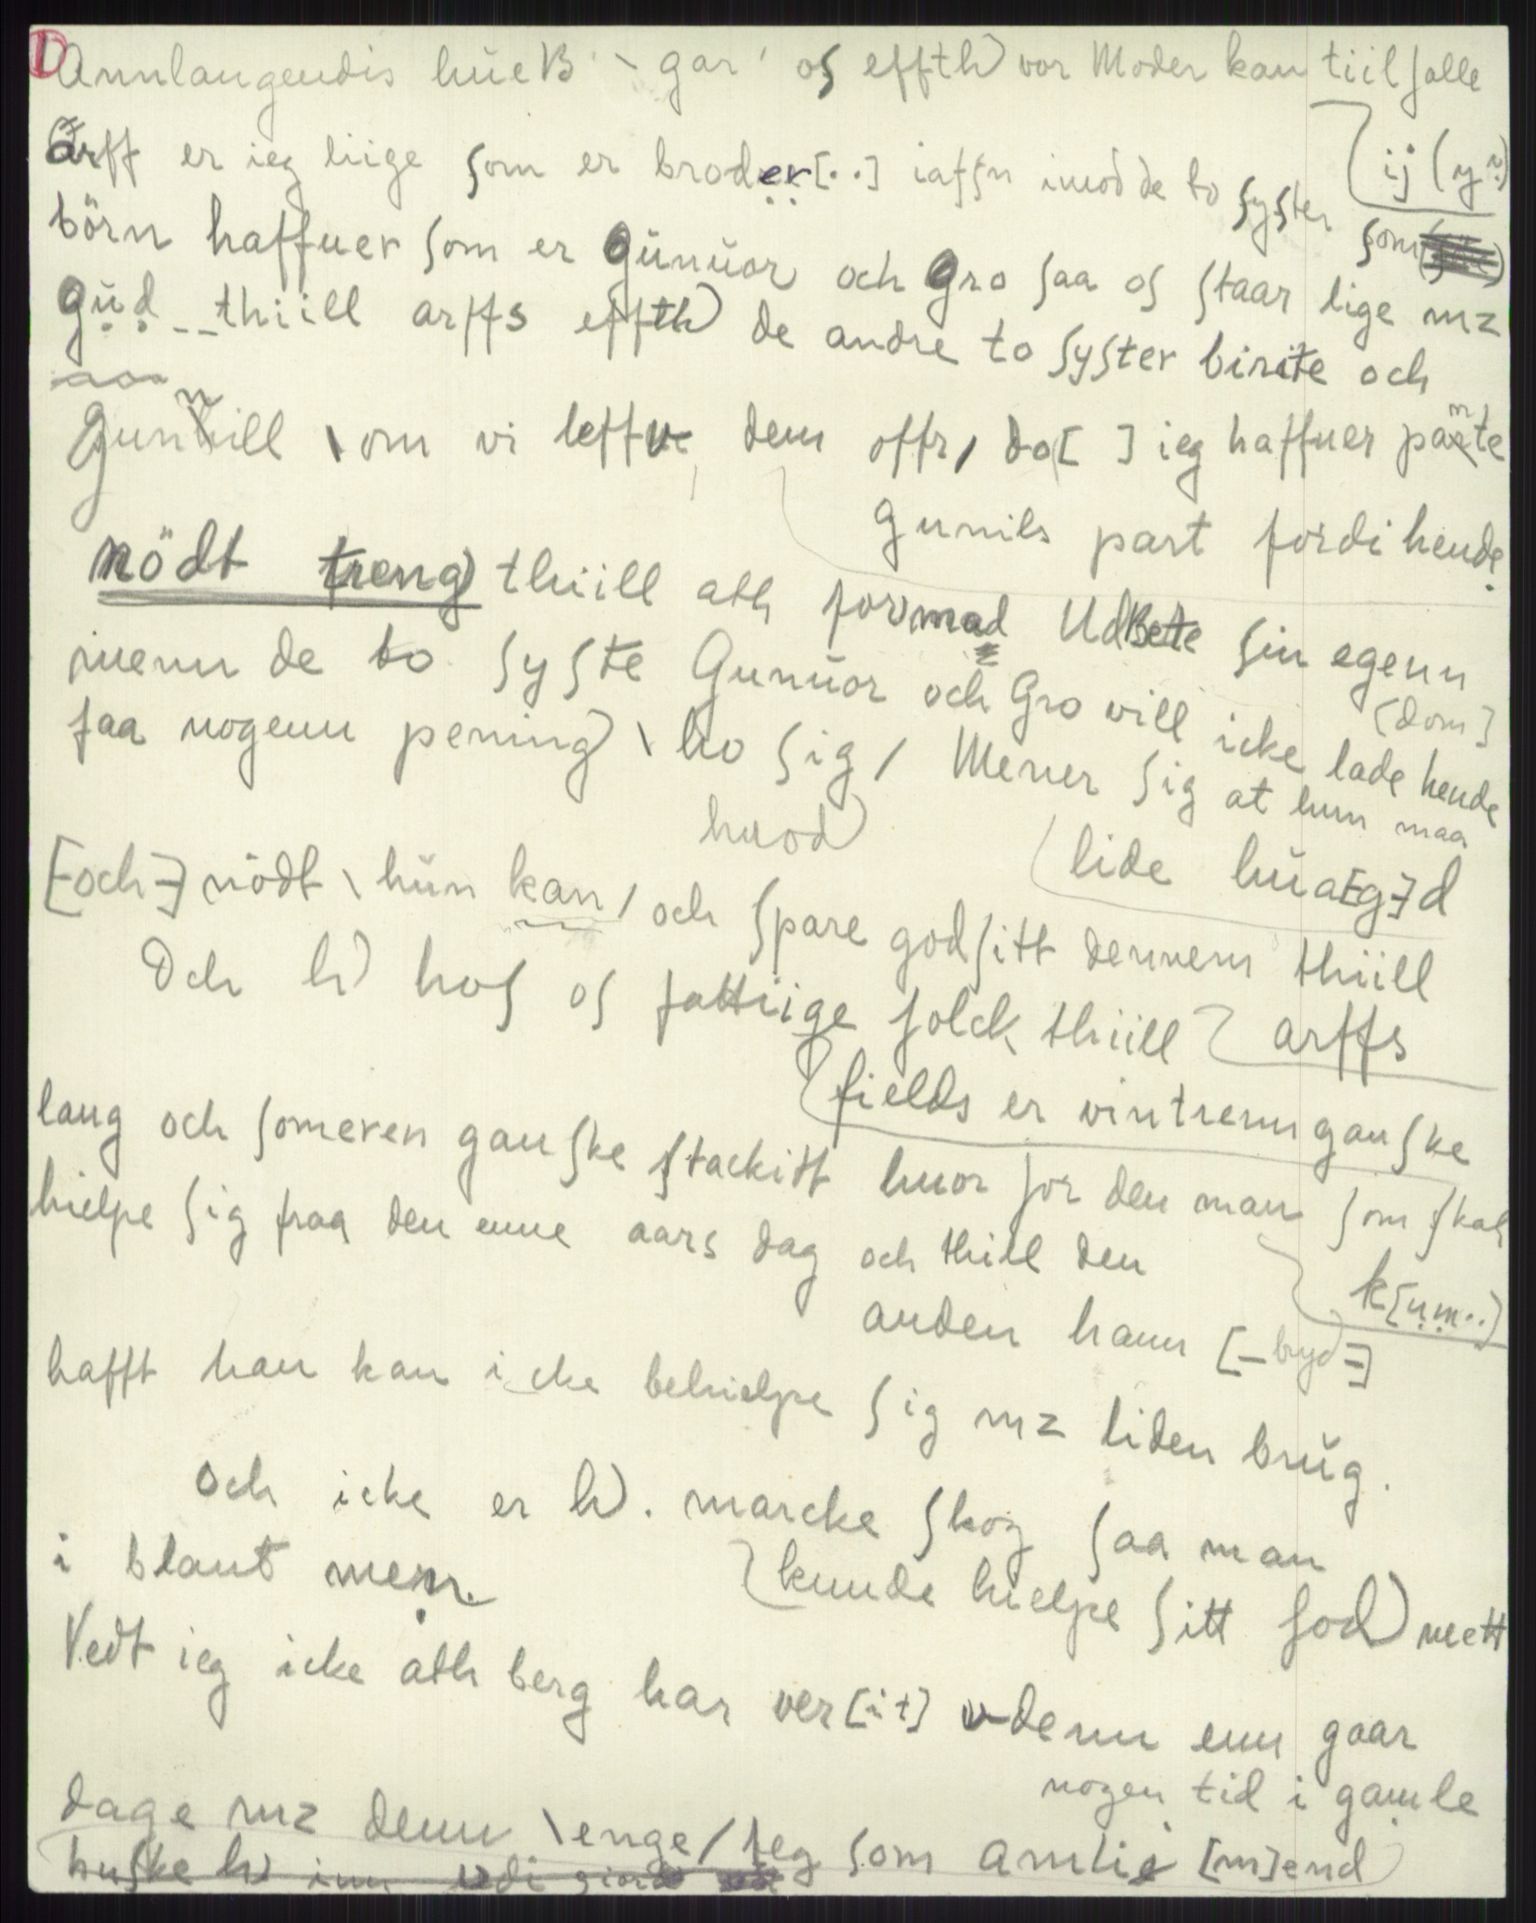 ① Annlangendis hŭeß \ gar / os effth) vor Moder kan tiil falle
Ærff er ieg liige som er broder[..] iaffn imod de to syster
ij (y..)
som
börn haffuer som er Gŭnŭor och Gro saa os staar lige mz
Gŭd __ thiill arffs effth) de andre to syster birite och
Gunnill \ om vi leffue dem offr / da[ ] ieg haffuer pante
Gunils part fordi hende
nödt treng) thiill ath formad Udßete sin egenn
(dom]
menn de to syste Gunŭor och Gro will icke lade hende
faa nogenn pening) \ ho sig / Mener sig at hun maa
lide hŭa[g]d
huod)
[-och-] nödt \ hŭn kan / och spare godsitt dennem thiill
arffs
Och h) hos os fattiige folck thiill
fields er vintrenn ganske
lang och someren ganske stackitt huor for den man som skal
k[um..)
hielpe sig fraa den enne aars dag och thill den
anden hann [-hyd-]
hafft han kan icke behielpe sig mz liden brŭg.
och icke er h). marcke skog saa man
kunde hielpe sitt fod) mett
i blant menn.
Vedt ieg icke ath berg har ver[it] vdenn enn gaar
nogen tid i gamle
dage mz denn \ enge / Jeg som amlie [m]end
huske h) inn vdi